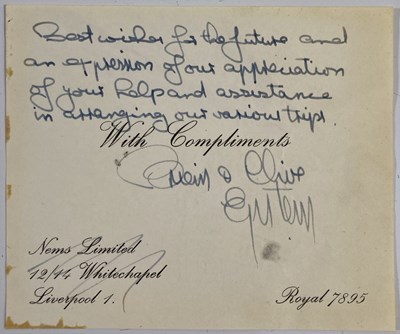 Best wishes for the future and
an expression of our appreciation
of your help and assistance
in arranging our various trips.
With Compliments
Brian & Clive
Epstein
Nems Limited
12/14 Whitechapel
Liverpool 1.
Royal 7895